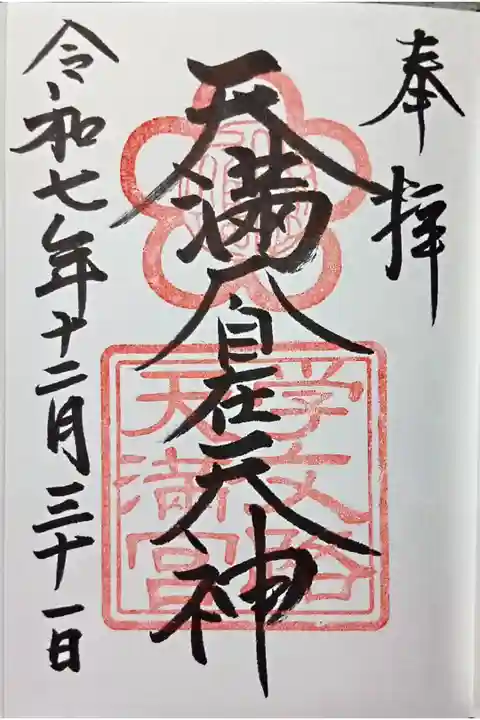 奉拝
天満大自在天神
学文路
天満宮
令和七年十二月三十一日